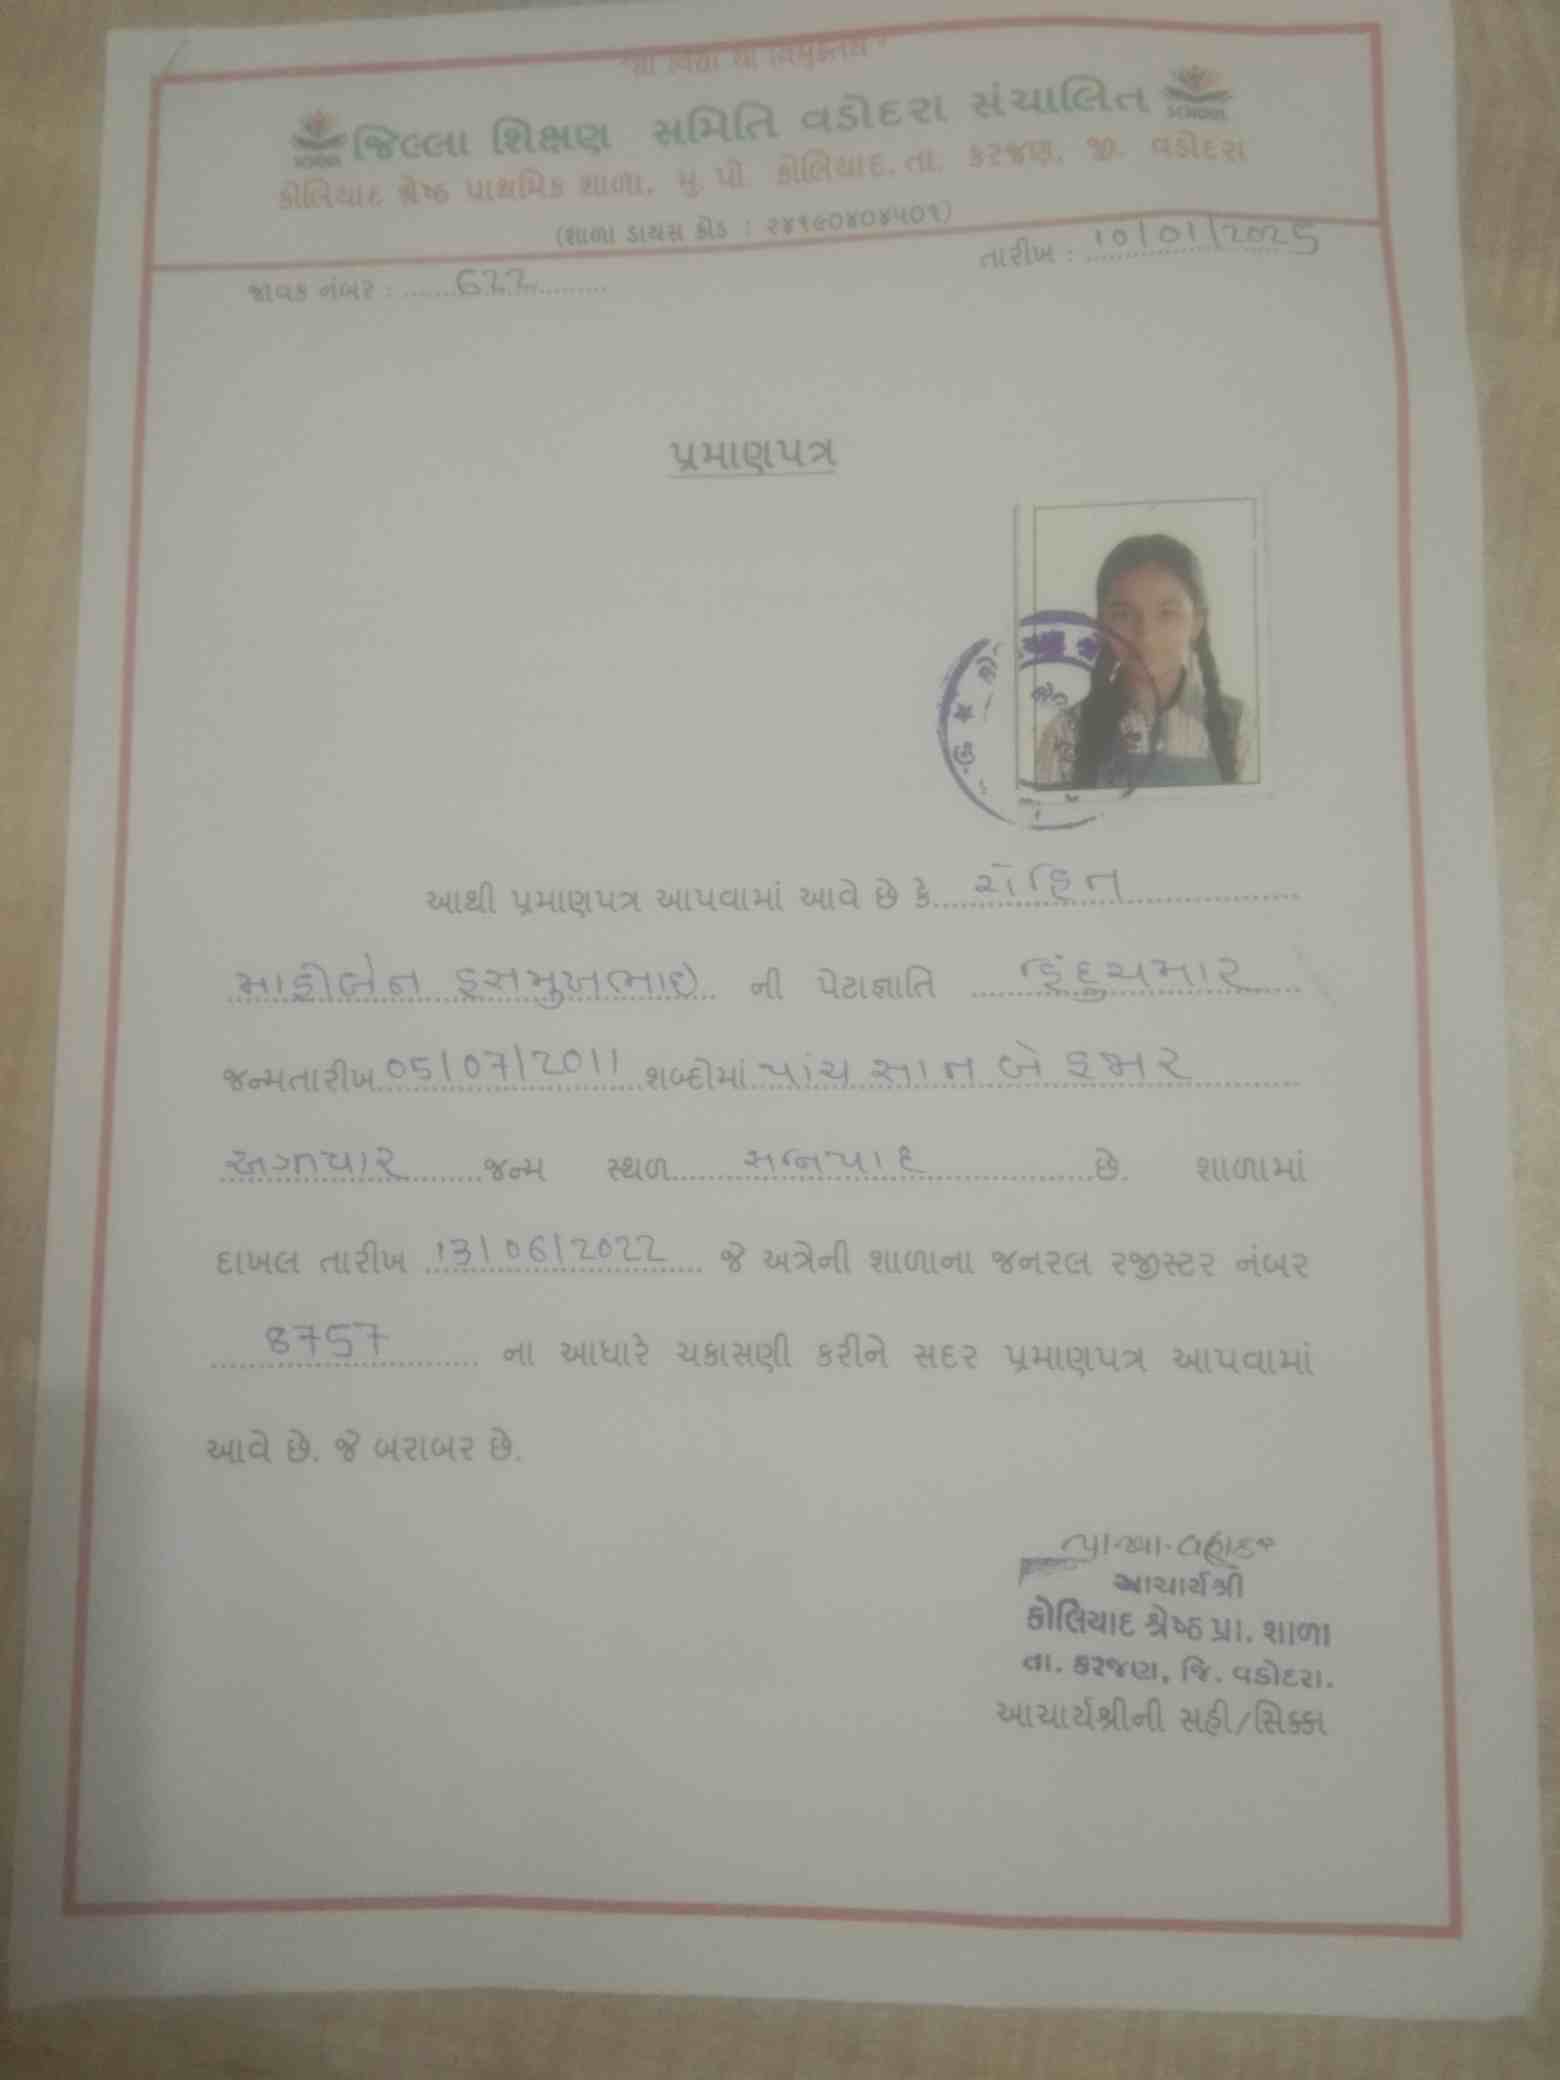 "સા વિદ્યા યા વિમુક્તયે"
જિલ્લા શિક્ષણ સમિતિ વડોદરા સંચાલિત
SCHOOL SCHOOL
કોલિયાદ શ્રેષ્ઠ પ્રાથમિક શાળા, મુ. પો. કોલિયાદ, તા. કરજણ, જી. વડોદરા
(શાળા ડાયસ કોડ : ૨૪૧૯૦૪૦૪૫૦૧)
તારીખ : 10/01/2025
જાવક નંબર : 622
પ્રમાણપત્ર
આથી પ્રમાણપત્ર આપવામાં આવે છે કે રોહિત
માહીબેન હસમુખભાઇ ની પેટાજ્ઞાતિ હિંદુચમાર
જન્મતારીખ 05/07/2011 શબ્દોમાં પાંચ સાત બે હજાર
અગિયાર જન્મ સ્થળ છે. શાળામાં
દાખલ તારીખ 13/06/2022 જે અત્રેની શાળાના જનરલ રજીસ્ટર નંબર
8757 ના આધારે ચકાસણી કરીને સદર પ્રમાણપત્ર આપવામાં
આવે છે. જે બરાબર છે.
આચાર્યશ્રી
કોલિયાદ શ્રેષ્ઠ પ્રા. શાળા
તા. કરજણ, જિ. વડોદરા.
આચાર્યશ્રીની સહી/સિક્કા